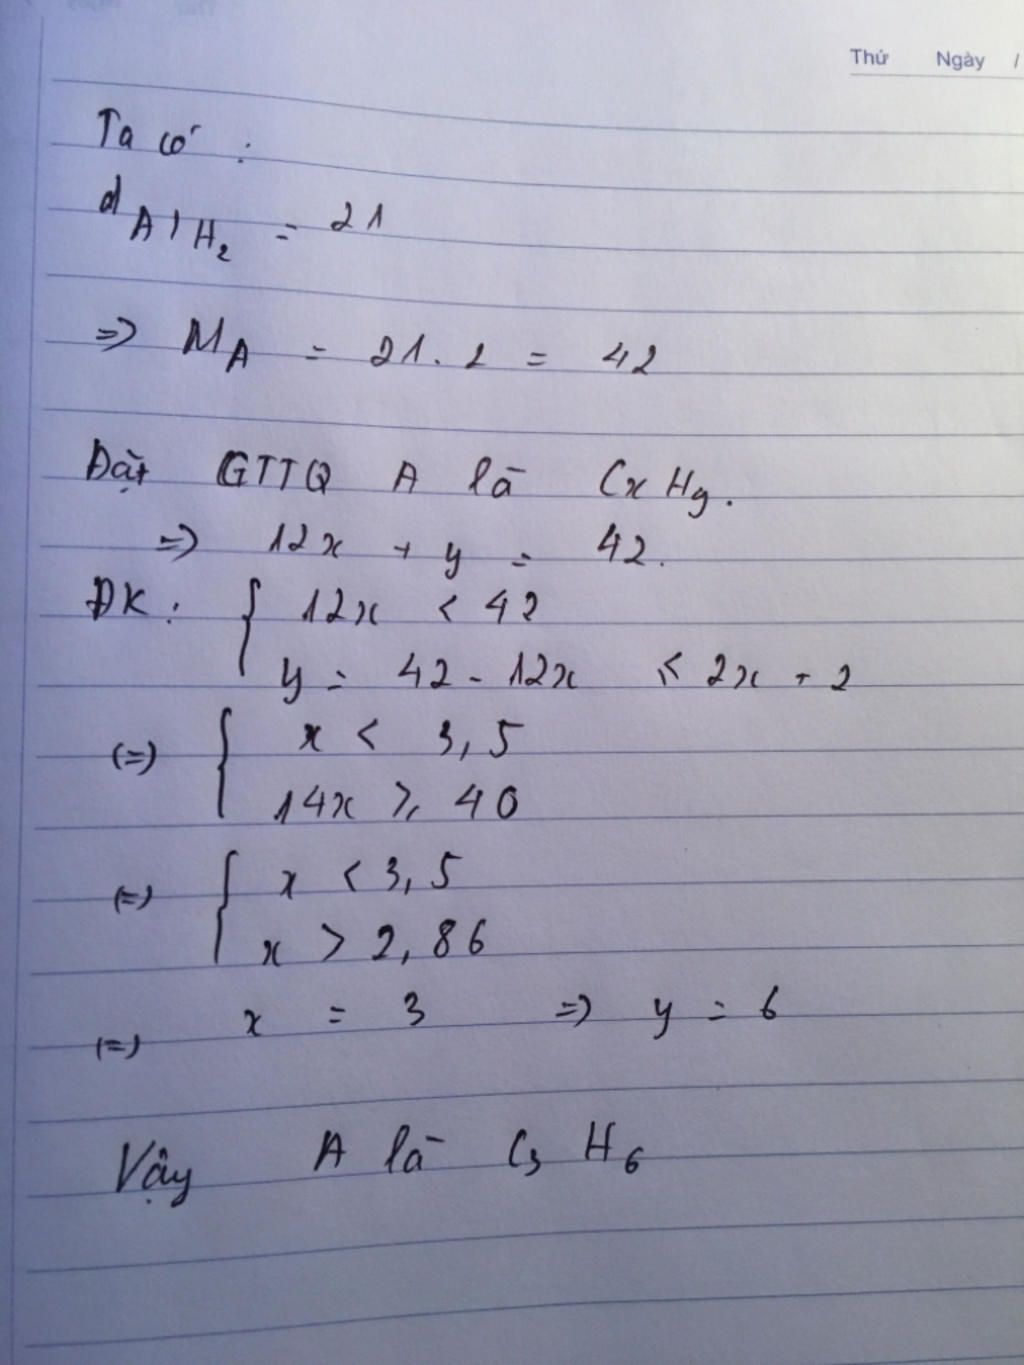 Thứ Ngày /
Ta có :
d A/H₂ = 21
=> M_A = 21. 2 = 42
Đặt GTTQ A là CxHy.
=> 12x + y = 42.
ĐK : { 12x < 42
y = 42 - 12x ≤ 2x + 2
(=) { x < 3,5
14x ≥ 40
(=) { x < 3,5
x > 2,86
(=) x = 3 => y = 6
Vậy A là C₃H₆